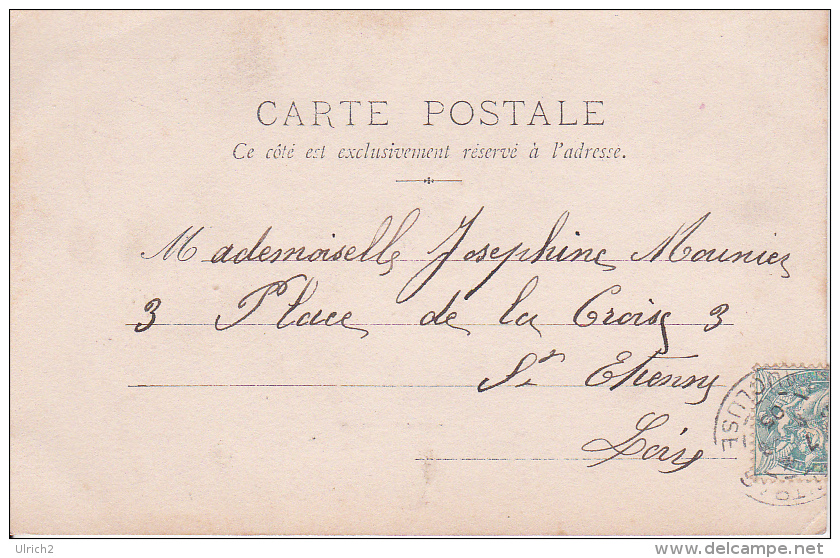 CARTE POSTALE
Ce côté est exclusivement réservé à l'adresse.
Mademoiselle Josephine Mounier
3 Place de la Croix 3
St Etienne
Loire
OLLUSE
03
Ulrich2
www.delcampe.net